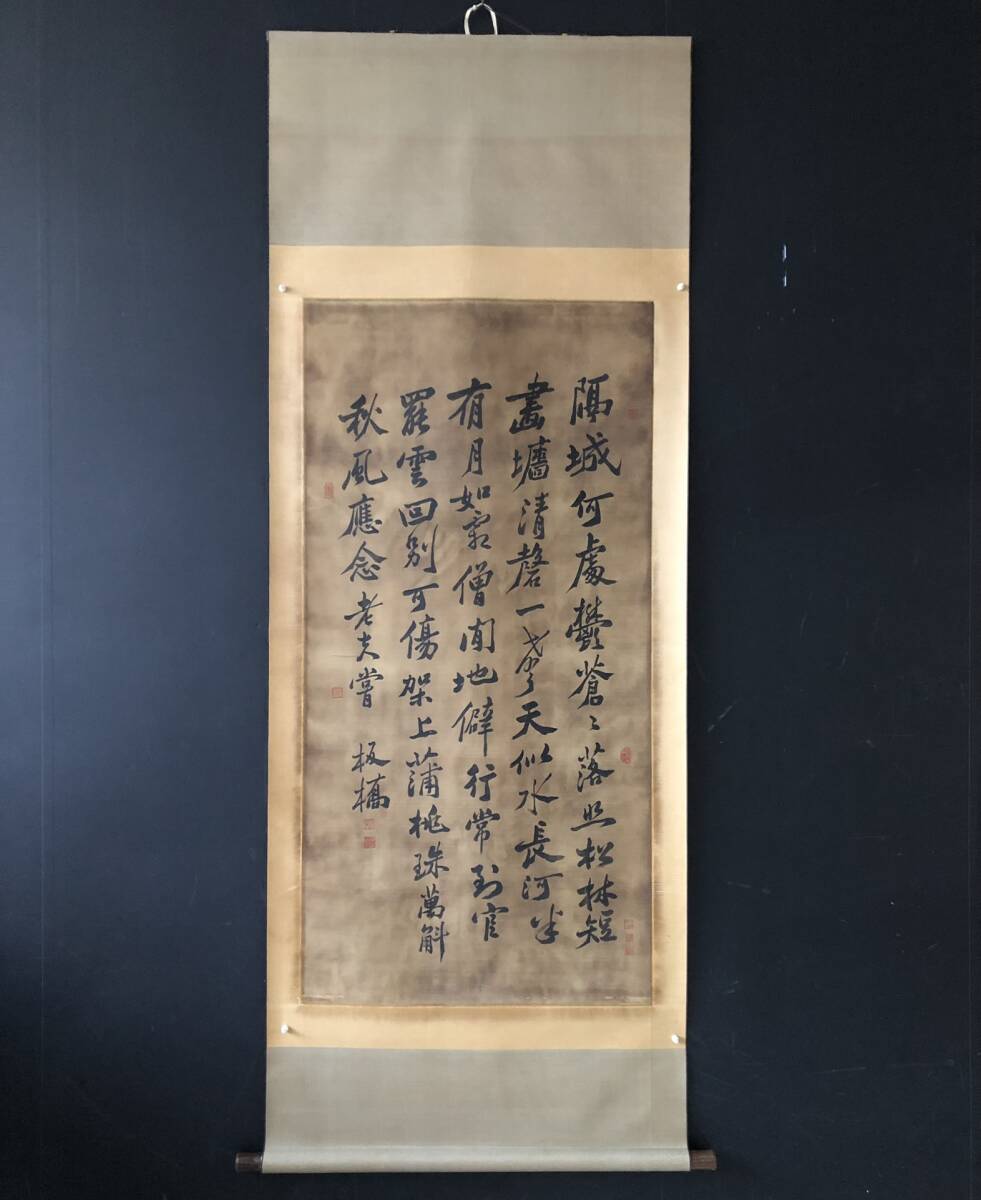 隔城何處鬱蒼〻落照松林短
畫墻清磬一聲天似水長河半
有月如霜僧閒地僻行常到官
罷雲回別可傷架上蒲桃珠萬斛
秋風應念老夫嘗
板橋